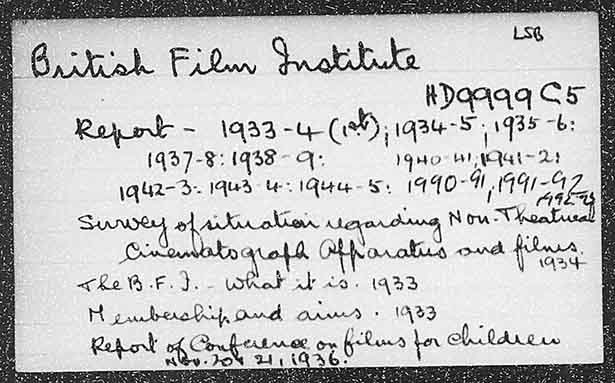 LSB
British Film Institute
HD9999 C5
Report - 1933-4 (1st); 1934-5; 1935-6:
1937-8: 1938-9: 1940-41, 1941-2:
1942-3: 1943-4: 1944-5: 1990-91, 1991-92
1992-93
Survey of situation regarding Non-Theatrical
Cinematograph Apparatus and films.
1934
The B.F.I. - What it is. 1933
Membership and aims. 1933
Report of Conference on films for children
Nov. 20 & 21, 1936.